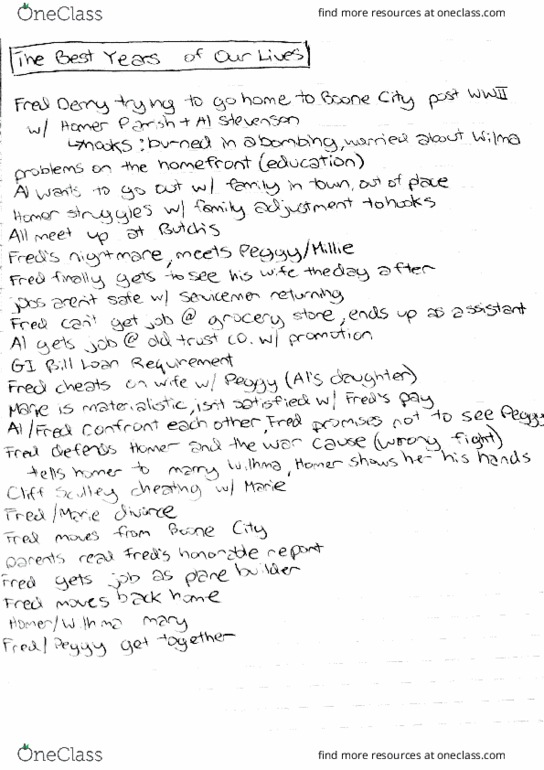 OneClass
find more resources at oneclass.com
The Best Years of Our Lives
Fred Derry trying to go home to Boone City post WWII
w/ Homer Parish + Al Stevenson
↳hooks: burned in a bombing, worried about Wilma
problems on the homefront (education)
Al wants to go out w/ family in town, out of place
Homer struggles w/ family adjustment to hooks
All meet up at Butch's
Fred's nightmare, meets Peggy/Millie
Fred finally gets to see his wife the day after
jobs aren't safe w/ servicemen returning
Fred can't get job @ grocery store, ends up as assistant
Al gets job @ old trust co. w/ promotion
GI Bill Loan Requirement
Fred cheats on wife w/ Peggy (Al's daughter)
Marie is materialistic, isn't satisfied w/ Fred's pay
Al/Fred confront each other, Fred promises not to see Peggy
Fred defends Homer and the war cause (wrong fight)
tells homer to marry Wilhma, Homer shows her his hands
Cliff Sculley cheating w/ Marie
Fred/Marie divorce
Fred moves from Boone City
parents read Fred's honorable report
Fred gets job as plane builder
Fred moves back home
Homer/Wilhma marry
Fred/Peggy get together
OneClass
find more resources at oneclass.com